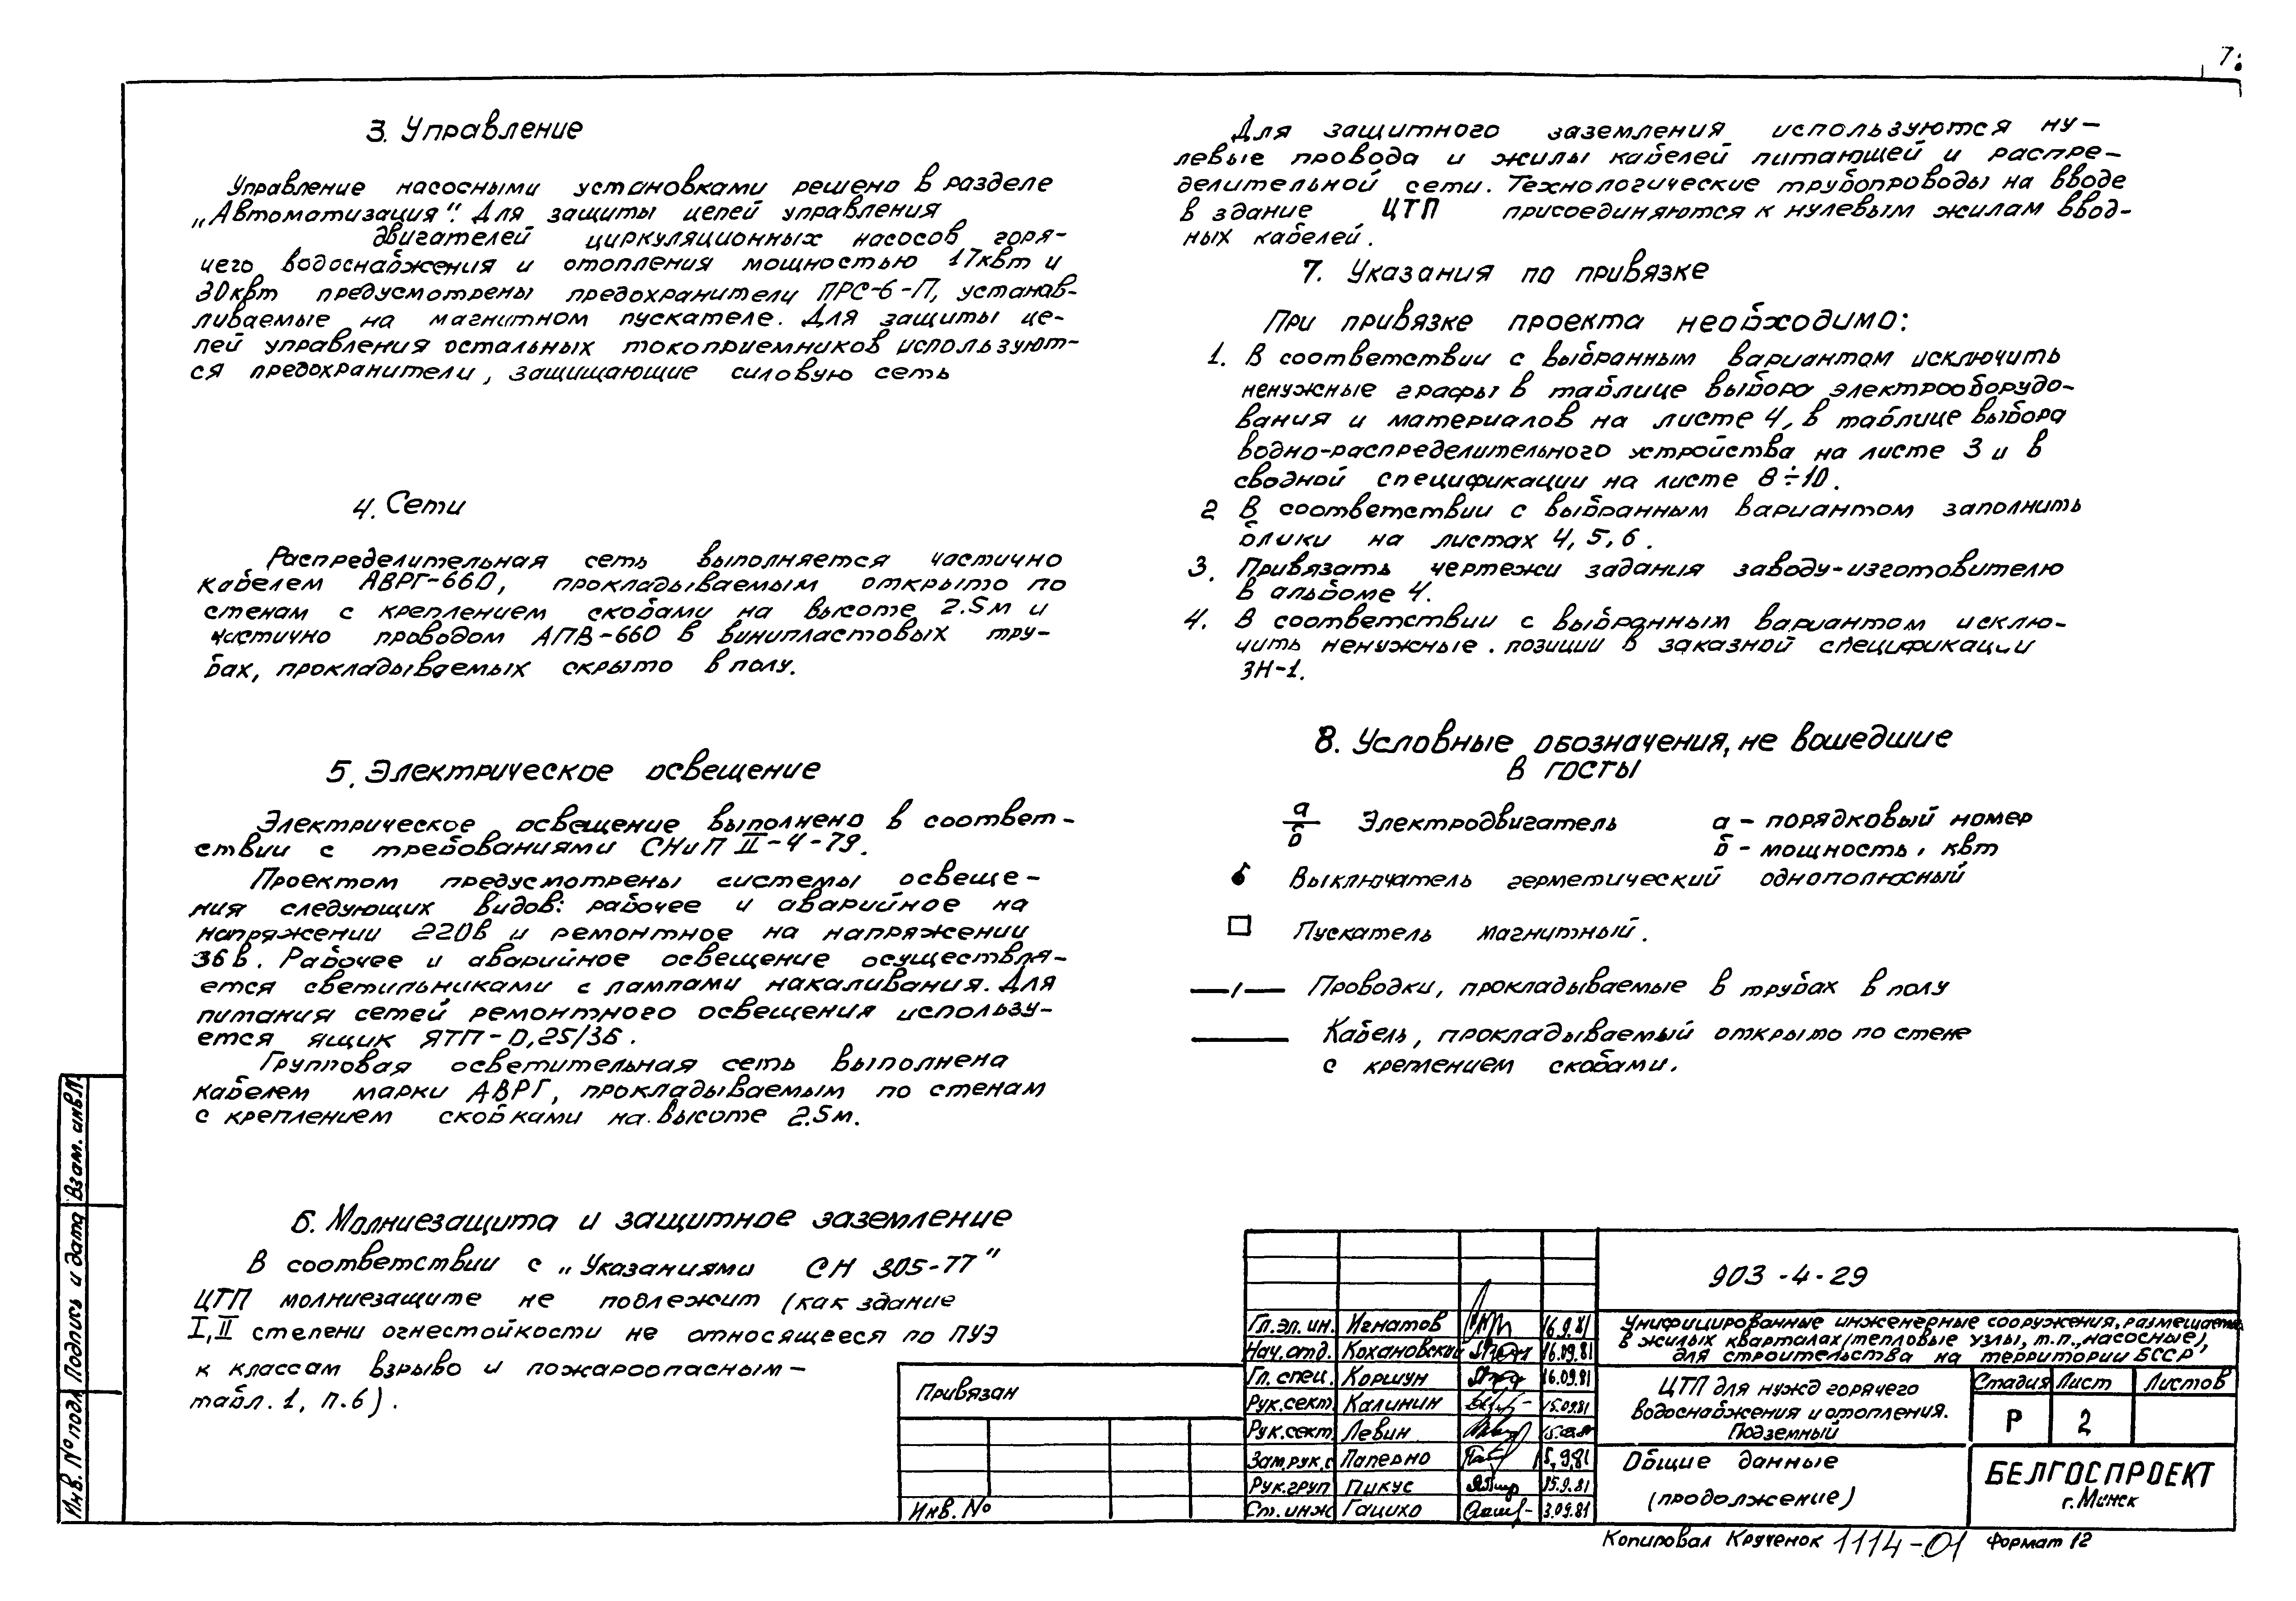 7.
3. Управление
Управление насосными установками решено в разделе
„Автоматизация". Для защиты цепей управления
двигателей циркуляционных насосов горя-
чего водоснабжения и отопления мощностью 17квт и
30квт предусмотрены предохранители ПРС-6-П, устанав-
ливаемые на магнитном пускателе. Для защиты це-
пей управления остальных токоприемников используют-
ся предохранители, защищающие силовую сеть
4. Сети
Распределительная сеть выполняется частично
кабелем АВРГ-660, прокладываемым открыто по
стенам с креплением скобами на высоте 2.5м и
частично проводом АПВ-660 в винипластовых тру-
бах, прокладываемых скрыто в полу.
5. Электрическое освещение
Электрическое освещение выполнено в соответ-
ствии с требованиями СНиП II-4-79.
Проектом предусмотрены системы освеще-
ния следующих видов: рабочее и аварийное на
напряжении 220в и ремонтное на напряжении
36в. Рабочее и аварийное освещение осуществля-
ется светильниками с лампами накаливания. Для
питания сетей ремонтного освещения использу-
ется ящик ЯТП-0,25/36.
Групповая осветительная сеть выполнена
кабелем марки АВРГ, прокладываемым по стенам
с креплением скобками на высоте 2.5м.
6. Молниезащита и защитное заземление
В соответствии с „Указаниями СН 305-77"
ЦТП молниезащите не подлежит (как здание
I, II степени огнестойкости не относящееся по ПУЭ
к классам взрыво и пожароопасным-
табл. 1, п.6).
Для защитного заземления используются ну-
левые провода и жилы кабелей питающей и распре-
делительной сети. Технологические трубопроводы на вводе
в здание ЦТП присоединяются к нулевым жилам ввод-
ных кабелей.
7. Указания по привязке
При привязке проекта необходимо:
1. В соответствии с выбранным вариантом исключить
ненужные графы в таблице выбора электрооборудо-
вания и материалов на листе 4, в таблице выбора
водно-распределительного устройства на листе 3 и в
сводной спецификации на листе 8÷10.
2 В соответствии с выбранным вариантом заполнить
блики на листах 4, 5, 6.
3. Привязать чертежи задания заводу-изготовителю
в альбоме 4.
4. В соответствии с выбранным вариантом исклю-
чить ненужные позиции в заказной спецификации
ЗН-1.
8. Условные обозначения, не вошедшие
в госты
а
б
Электродвигатель
а - порядковый номер
б - мощность, квт
Выключатель герметический однополюсный
Пускатель магнитный.
Проводки, прокладываемые в трубах в полу
Кабель, прокладываемый открыто по стене
с креплением скобами.
Взам. инв.№
Подпись и дата
Инв. № подл
Привязан
Инв. №
Гл.эл.ин. Игнатов 16.9.81
Нач.отд. Кохановский 16.09.81
Гл. спец. Коршун 16.09.81
Рук.сект. Калинин 15.09.81
Рук.сект. Левин
Зам.рук.с Паперно 15.9.81
Рук.груп Пикус 15.9.81
Ст. инж Гацихо 3.09.81
903-4-29
Унифицированные инженерные сооружения, размещаемые
в жилых кварталах (тепловые узлы, т.п., насосные),
для строительства на территории БССР
ЦТП для нужд горячего
водоснабжения и отопления.
Подземный
Стадия Лист Листов
Р 2
Общие данные
(продолжение)
БЕЛГОСПРОЕКТ
г. Минск
Копировал Крученок 1114-01 Формат 12